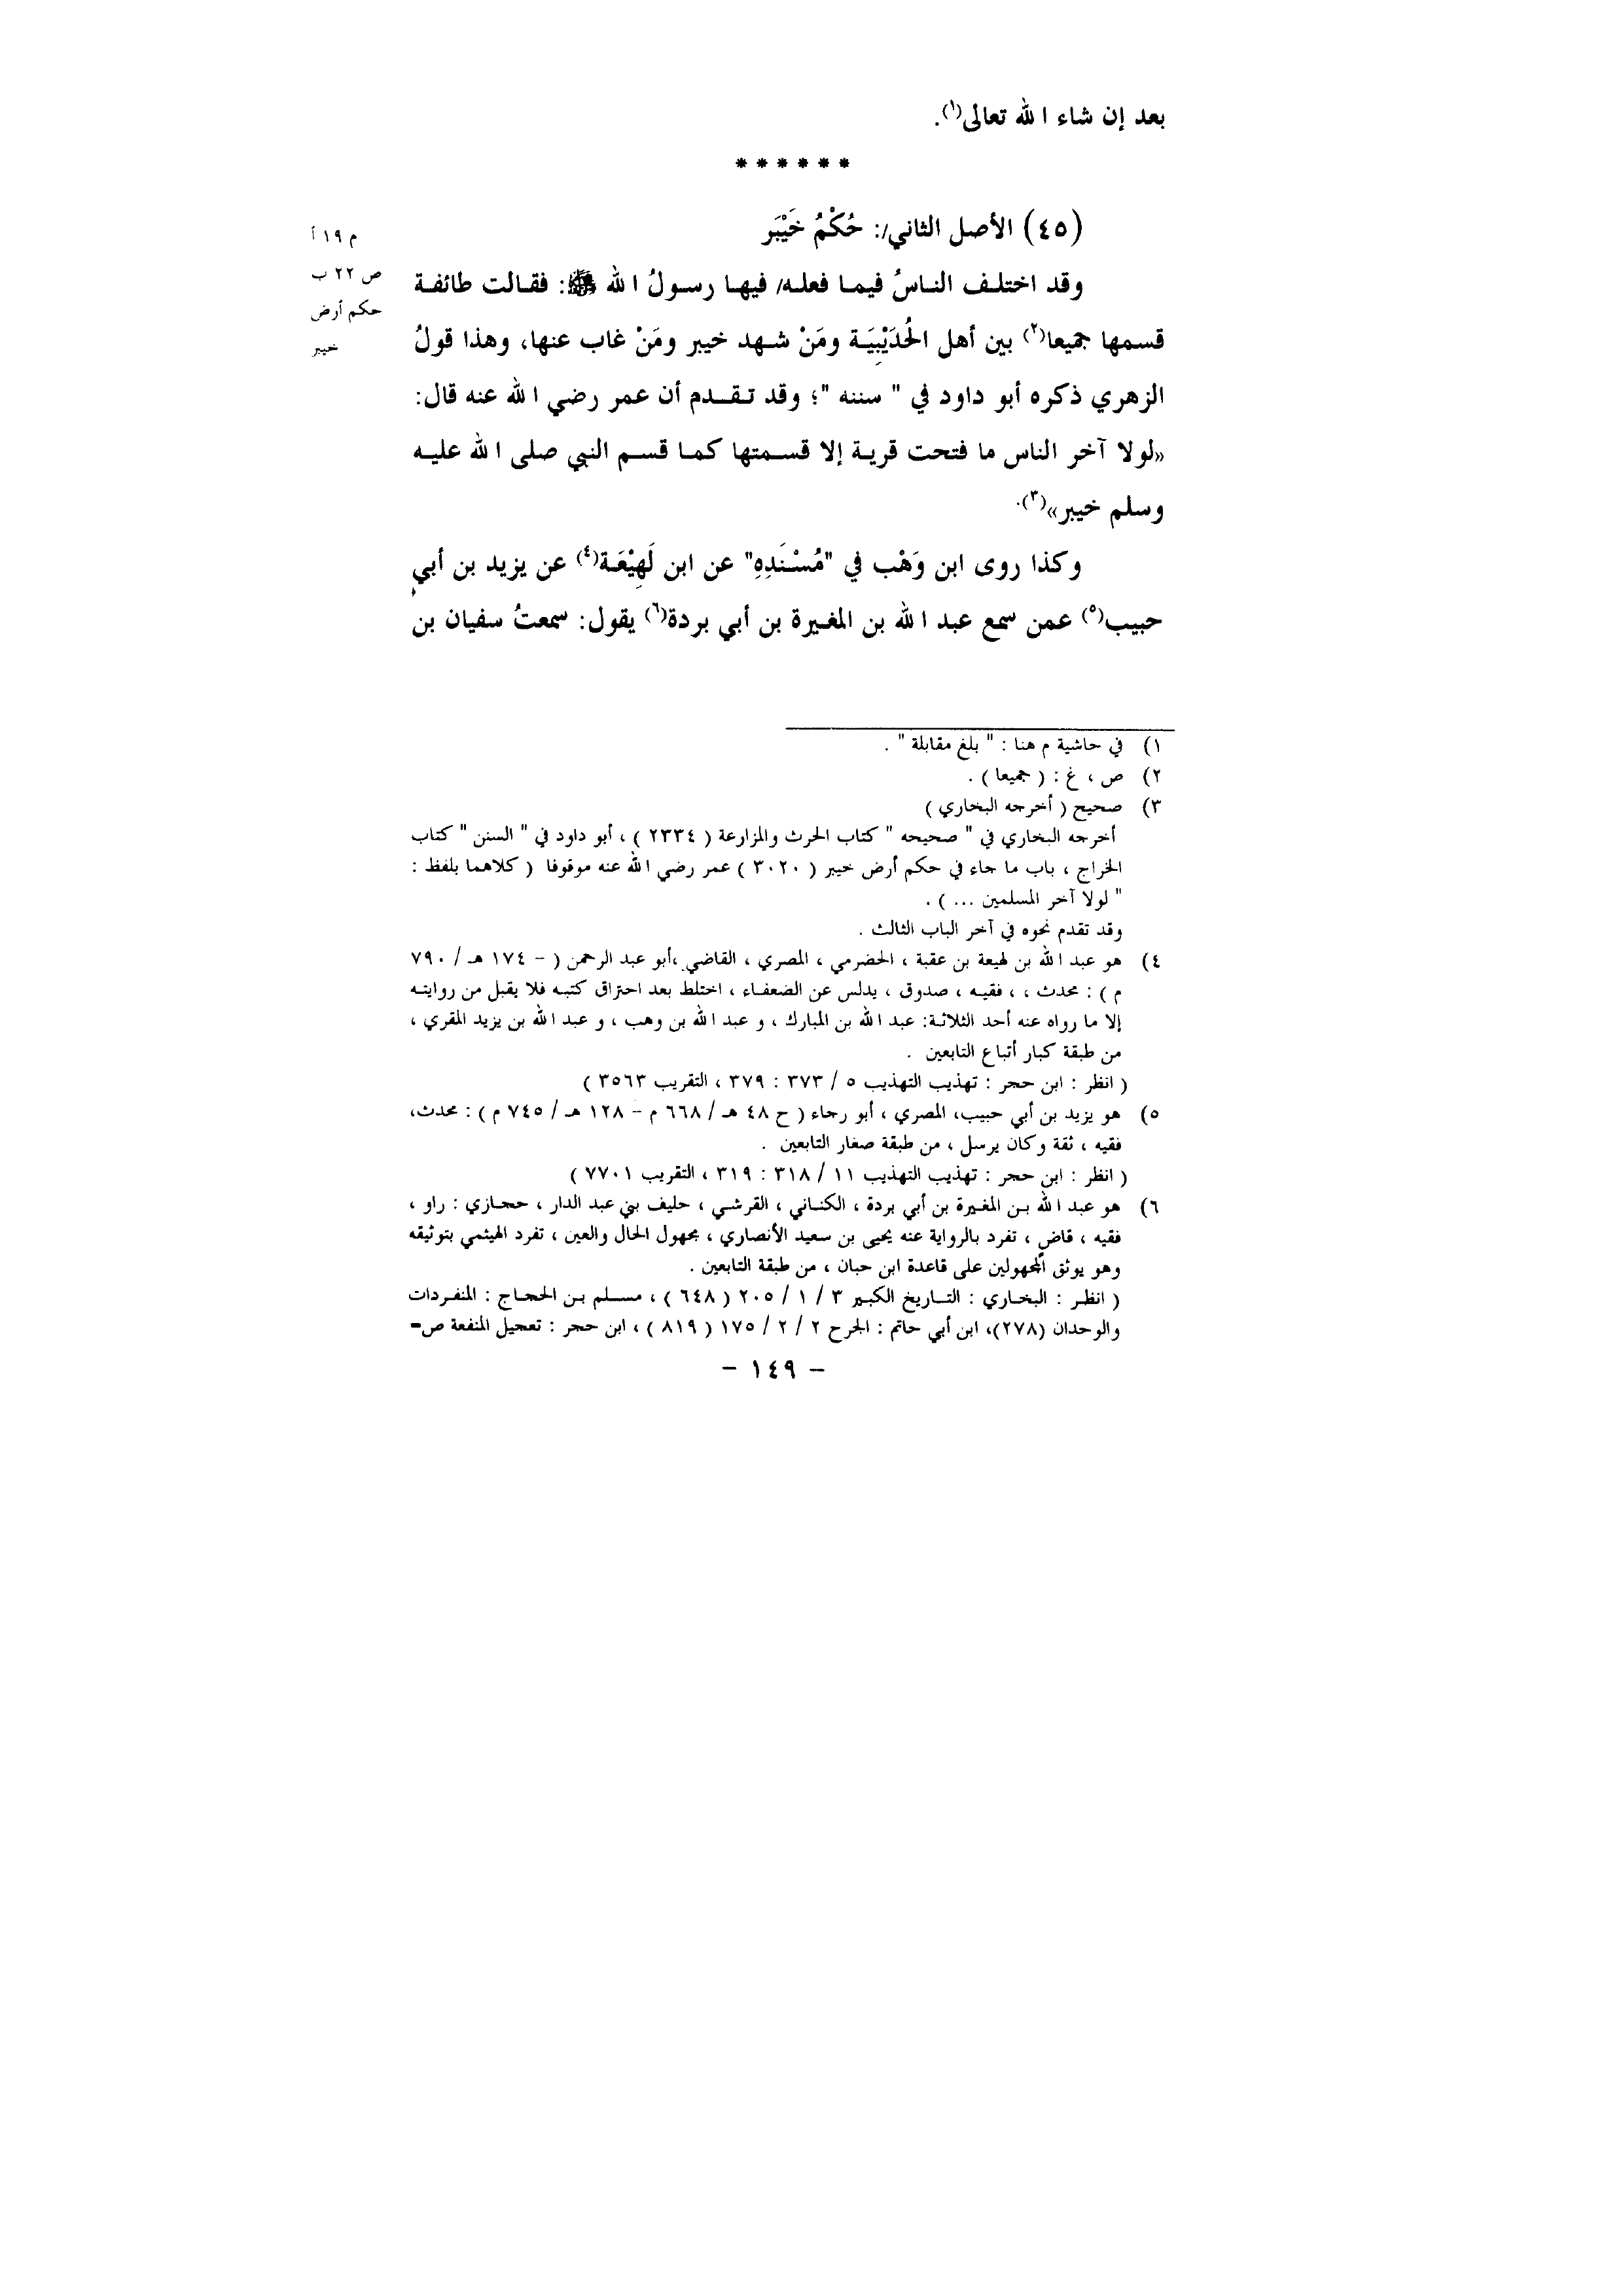 بعد إن شاء الله تعالى(١).
* * * * * *
(٤٥) الأصل الثاني/: حُكْمُ خَيْبَر
م ١٩ أ
وقد اختلف الناسُ فيما فعله/ فيها رسولُ الله ﷺ: فقالت طائفة
ص ٢٢ ب
حكم أرض
قسمها جميعا(٢) بين أهل الحُدَيْبِيَة ومَنْ شهد خيبر ومَنْ غاب عنها، وهذا قولُ
خيبر
الزهري ذكره أبو داود في " سننه "؛ وقد تقدم أن عمر رضي الله عنه قال:
«لولا آخر الناس ما فتحت قرية إلا قسمتها كما قسم النبي صلى الله عليه
وسلم خيبر»(٣).
وكذا روى ابن وَهْب في "مُسْنَدِهِ" عن ابن لَهِيْعَة(٤) عن يزيد بن أبي
حبيب(٥) عمن سمع عبد الله بن المغيرة بن أبي بردة(٦) يقول: سمعتُ سفيان بن
١) في حاشية م هنا : " بلغ مقابلة " .
٢) ص ، غ : ( جميعا ) .
٣) صحيح ( أخرجه البخاري )
أخرجه البخاري في " صحيحه " كتاب الحرث والمزارعة ( ٢٣٣٤ ) ، أبو داود في " السنن " كتاب
الخراج ، باب ما جاء في حكم أرض خيبر ( ٣٠٢٠ ) عمر رضي الله عنه موقوفا ( كلاهما بلفظ :
" لولا آخر المسلمين ... ) .
وقد تقدم نحوه في آخر الباب الثالث .
٤) هو عبد الله بن لهيعة بن عقبة ، الحضرمي ، المصري ، القاضي ،أبو عبد الرحمن ( - ١٧٤ هـ / ٧٩٠
م ) : محدث ، ، فقيه ، صدوق ، يدلس عن الضعفاء ، اختلط بعد احتراق كتبه فلا يقبل من روايته
إلا ما رواه عنه أحد الثلاثة: عبد الله بن المبارك ، و عبد الله بن وهب ، و عبد الله بن يزيد المقري ،
من طبقة كبار أتباع التابعين .
( انظر : ابن حجر : تهذيب التهذيب ٥ / ٣٧٣ : ٣٧٩ ، التقريب ٣٥٦٣ )
٥) هو يزيد بن أبي حبيب، المصري ، أبو رجاء ( ح ٤٨ هـ / ٦٦٨ م - ١٢٨ هـ / ٧٤٥ م ) : محدث،
فقيه ، ثقة وكان يرسل ، من طبقة صغار التابعين .
( انظر : ابن حجر : تهذيب التهذيب ١١ / ٣١٨ : ٣١٩ ، التقريب ٧٧٠١ )
٦) هو عبد الله بن المغيرة بن أبي بردة ، الكناني ، القرشي ، حليف بني عبد الدار ، حجازي : راو ،
فقيه ، قاض ، تفرد بالرواية عنه يحيى بن سعيد الأنصاري ، مجهول الحال والعين ، تفرد الهيثمي بتوثيقه
وهو يوثق المجهولين على قاعدة ابن حبان ، من طبقة التابعين .
( انظر : البخاري : التاريخ الكبير ٣ / ١ / ٢٠٥ ( ٦٤٨ ) ، مسلم بن الحجاج : المنفردات
والوحدان (٢٧٨)، ابن أبي حاتم : الجرح ٢ / ٢ / ١٧٥ ( ٨١٩ ) ، ابن حجر : تعجيل المنفعة ص=
- ١٤٩ -